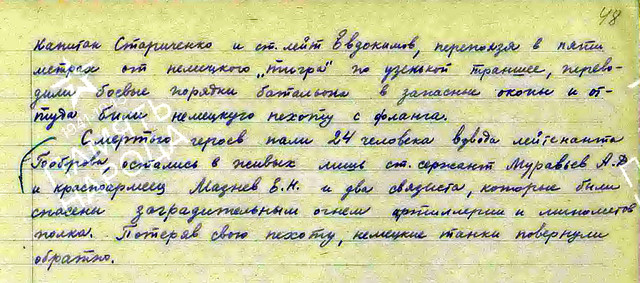 48
Капитан Стариченко и ст. лейт Евдокимов, переползя в пяти
метрах от немецкого „тигра" по узенькой траншее, перево-
дили боевые порядки батальона в запасные окопы и от-
туда били немецкую пехоту с фланга.
Смертью героев пали 24 человека взвода лейтенанта
остались в живых лишь ст. сержант Муравьев А.Ф
и красноармеец Маднев В.Н. и два связиста, которые были
спасены заградительным огнем артиллерии и минометов
полка. Потеряв свою пехоту, немецкие танки повернули
обратно.